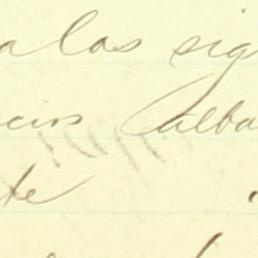 a las sig
cios Calba
te